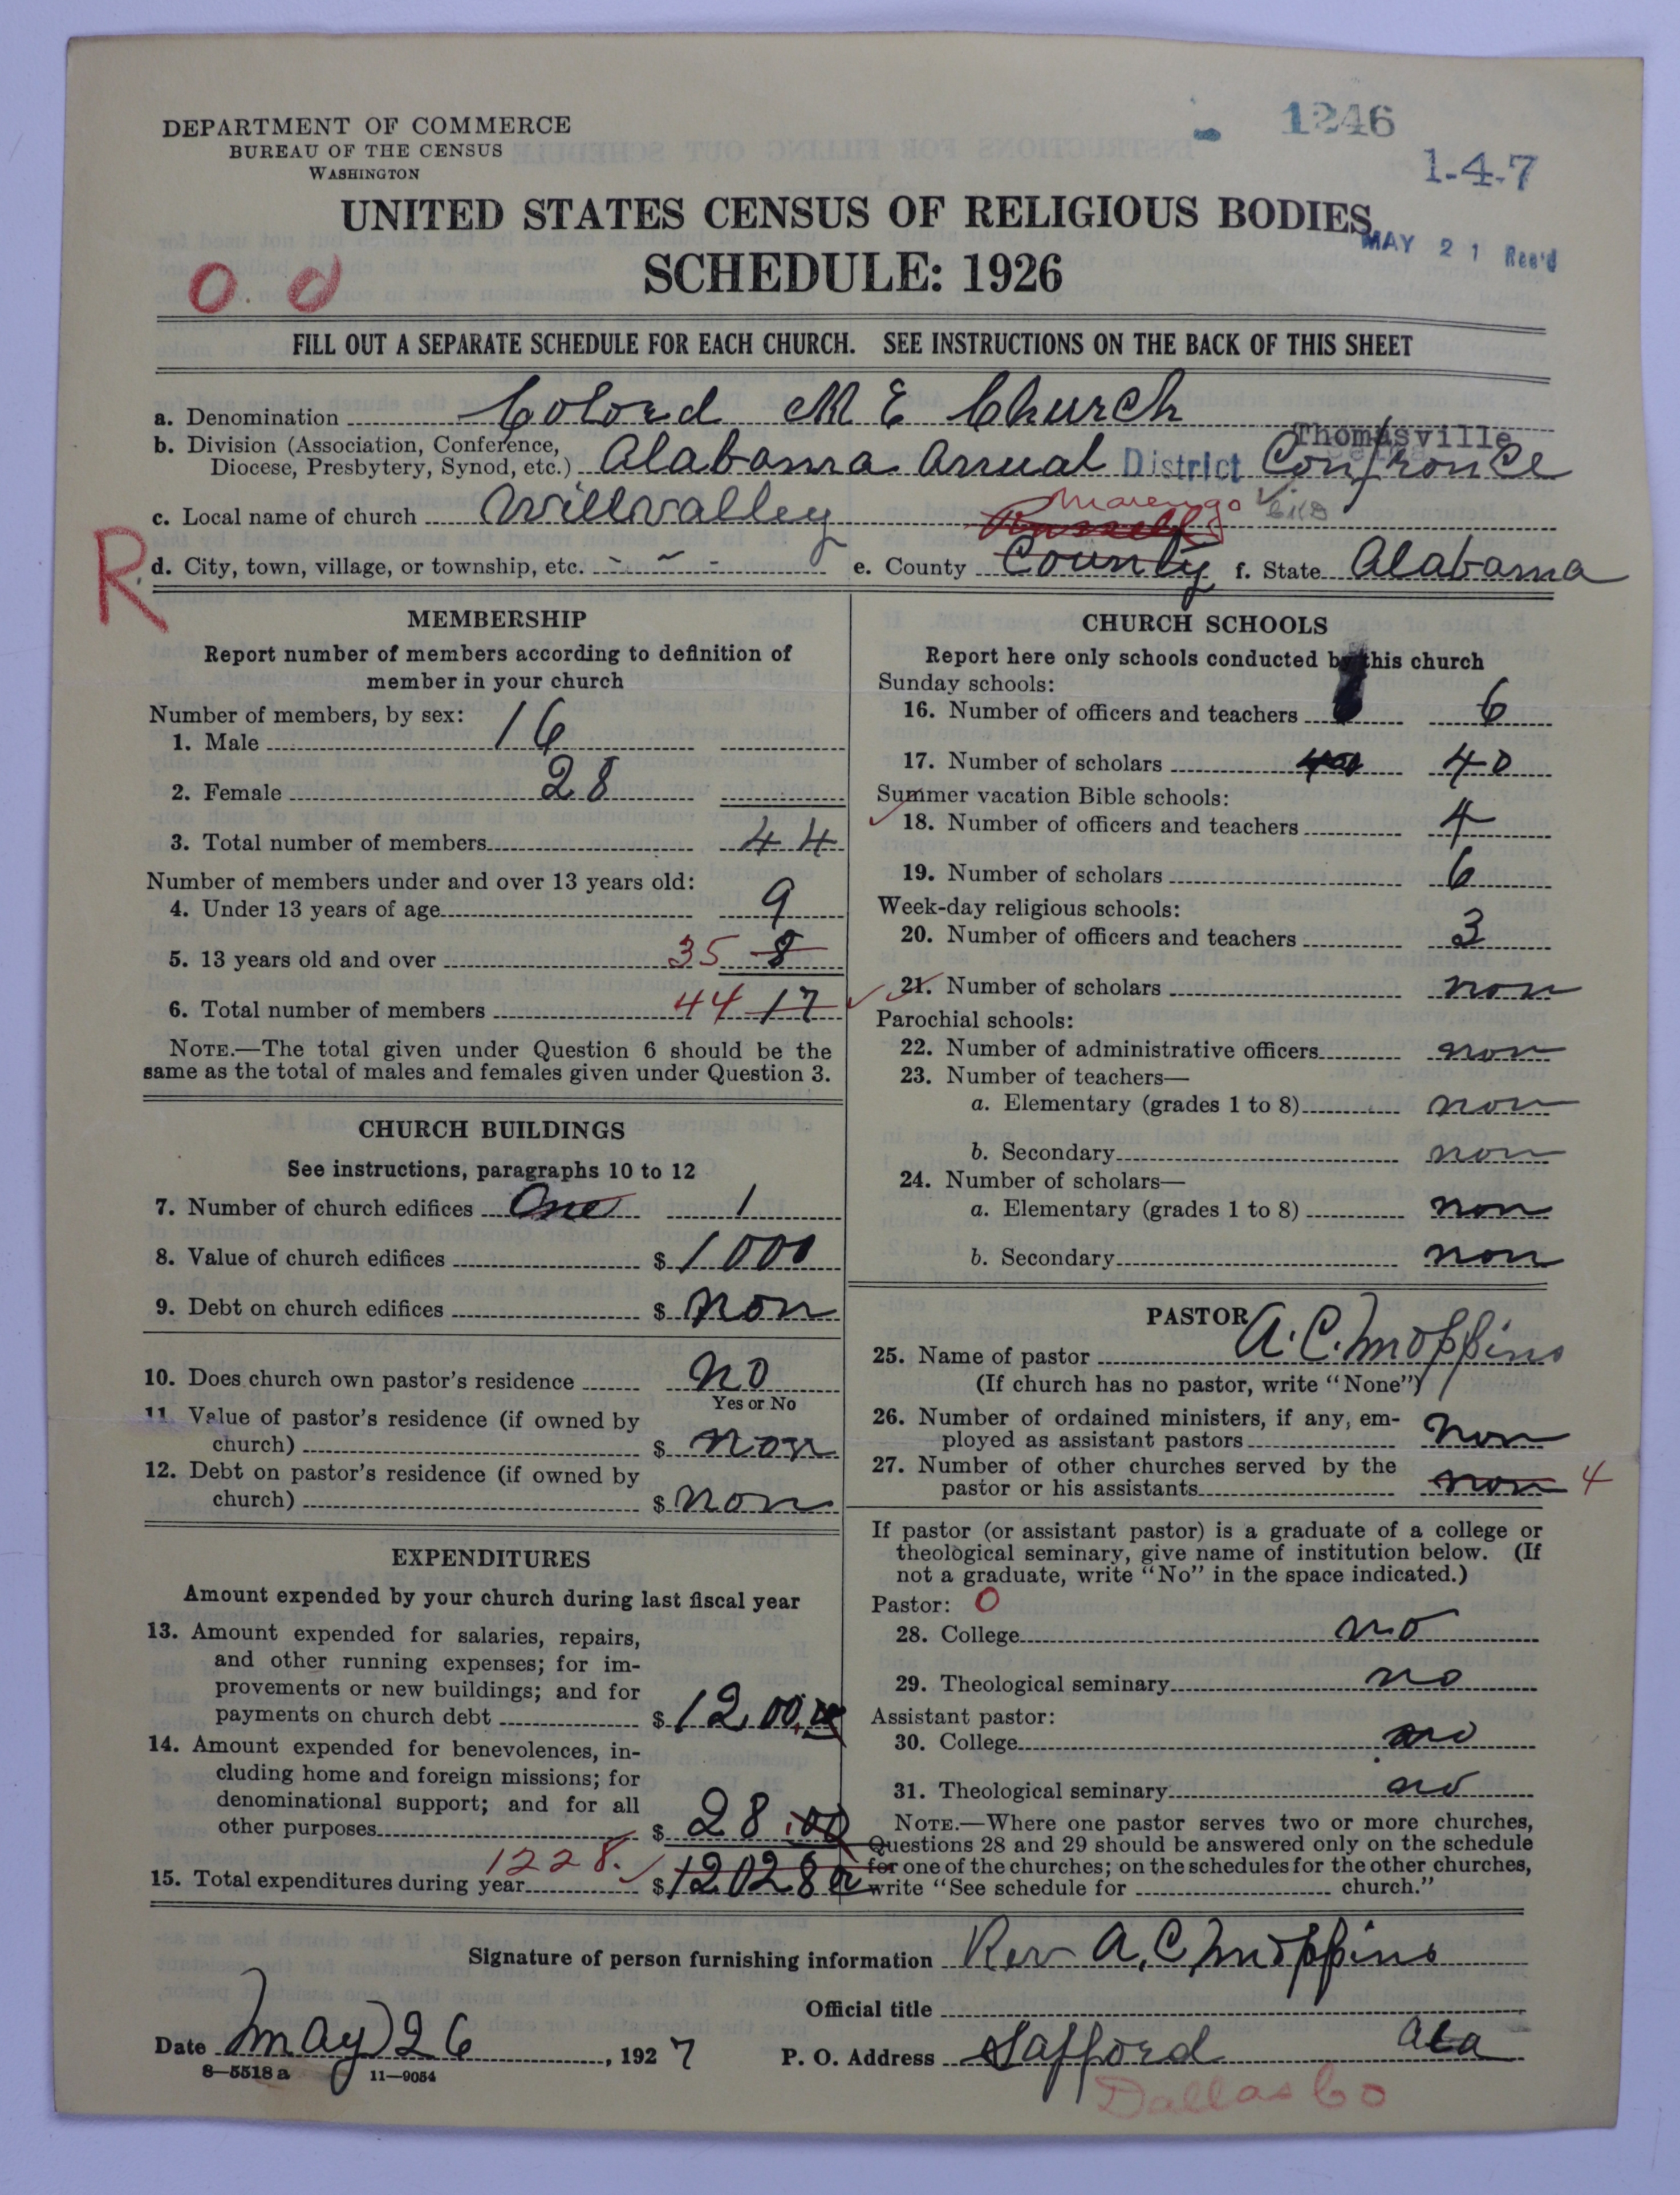 1246
1-4-7
DEPARTMENT OF COMMERCE
BUREAU OF THE CENSUS
WASHINGTON
UNITED STATES CENSUS OF RELIGIOUS BODIES
MAY 21 Rec'd
SCHEDULE: 1926
O O
FILL OUT A SEPARATE SCHEDULE FOR EACH CHURCH. SEE INSTRUCTIONS ON THE BACK OF THIS SHEET
a. Denomination Colord M E Church
Thomasville
b. Division (Association, Conference,
Diocese, Presbytery, Synod, etc.) Alabama Annual District Confronce
Marengo
c. Local name of church Willvalley Russell
R
d. City, town, village, or township, etc. - - - e. County County f. State Alabama
MEMBERSHIP
Report number of members according to definition of
member in your church
Number of members, by sex:
1. Male 16
2. Female 28
3. Total number of members 44
Number of members under and over 13 years old:
4. Under 13 years of age 9
5. 13 years old and over 35 8
6. Total number of members 44 17
NOTE.—The total given under Question 6 should be the
same as the total of males and females given under Question 3.
CHURCH BUILDINGS
See instructions, paragraphs 10 to 12
7. Number of church edifices One 1
8. Value of church edifices $ 1000
9. Debt on church edifices $ non
10. Does church own pastor's residence no
Yes or No
11. Value of pastor's residence (if owned by
church) $ non
12. Debt on pastor's residence (if owned by
church) $ non
EXPENDITURES
Amount expended by your church during last fiscal year
13. Amount expended for salaries, repairs,
and other running expenses; for im-
provements or new buildings; and for
payments on church debt $ 1200.00
14. Amount expended for benevolences, in-
cluding home and foreign missions; for
denominational support; and for all
other purposes $ 28.00
15. Total expenditures during year 1228. $ 12028 00
CHURCH SCHOOLS
Report here only schools conducted by this church
Sunday schools:
16. Number of officers and teachers 6
17. Number of scholars 400 40
Summer vacation Bible schools:
18. Number of officers and teachers 4
19. Number of scholars 6
Week-day religious schools:
20. Number of officers and teachers 3
21. Number of scholars non
Parochial schools:
22. Number of administrative officers non
23. Number of teachers—
a. Elementary (grades 1 to 8) non
b. Secondary non
24. Number of scholars—
a. Elementary (grades 1 to 8) non
b. Secondary non
PASTOR
25. Name of pastor A. C. Moppins
(If church has no pastor, write "None")
26. Number of ordained ministers, if any, em-
ployed as assistant pastors non
27. Number of other churches served by the
pastor or his assistants non 4
If pastor (or assistant pastor) is a graduate of a college or
theological seminary, give name of institution below. (If
not a graduate, write "No" in the space indicated.)
Pastor: O
28. College no
29. Theological seminary no
Assistant pastor:
30. College no
31. Theological seminary no
NOTE.—Where one pastor serves two or more churches,
Questions 28 and 29 should be answered only on the schedule
for one of the churches; on the schedules for the other churches,
write "See schedule for church."
Signature of person furnishing information Rev A, C, Moppins
Official title
Date May 26, 1927 P. O. Address Safford Ala
8—5518 a 11—9054
Dallas Co